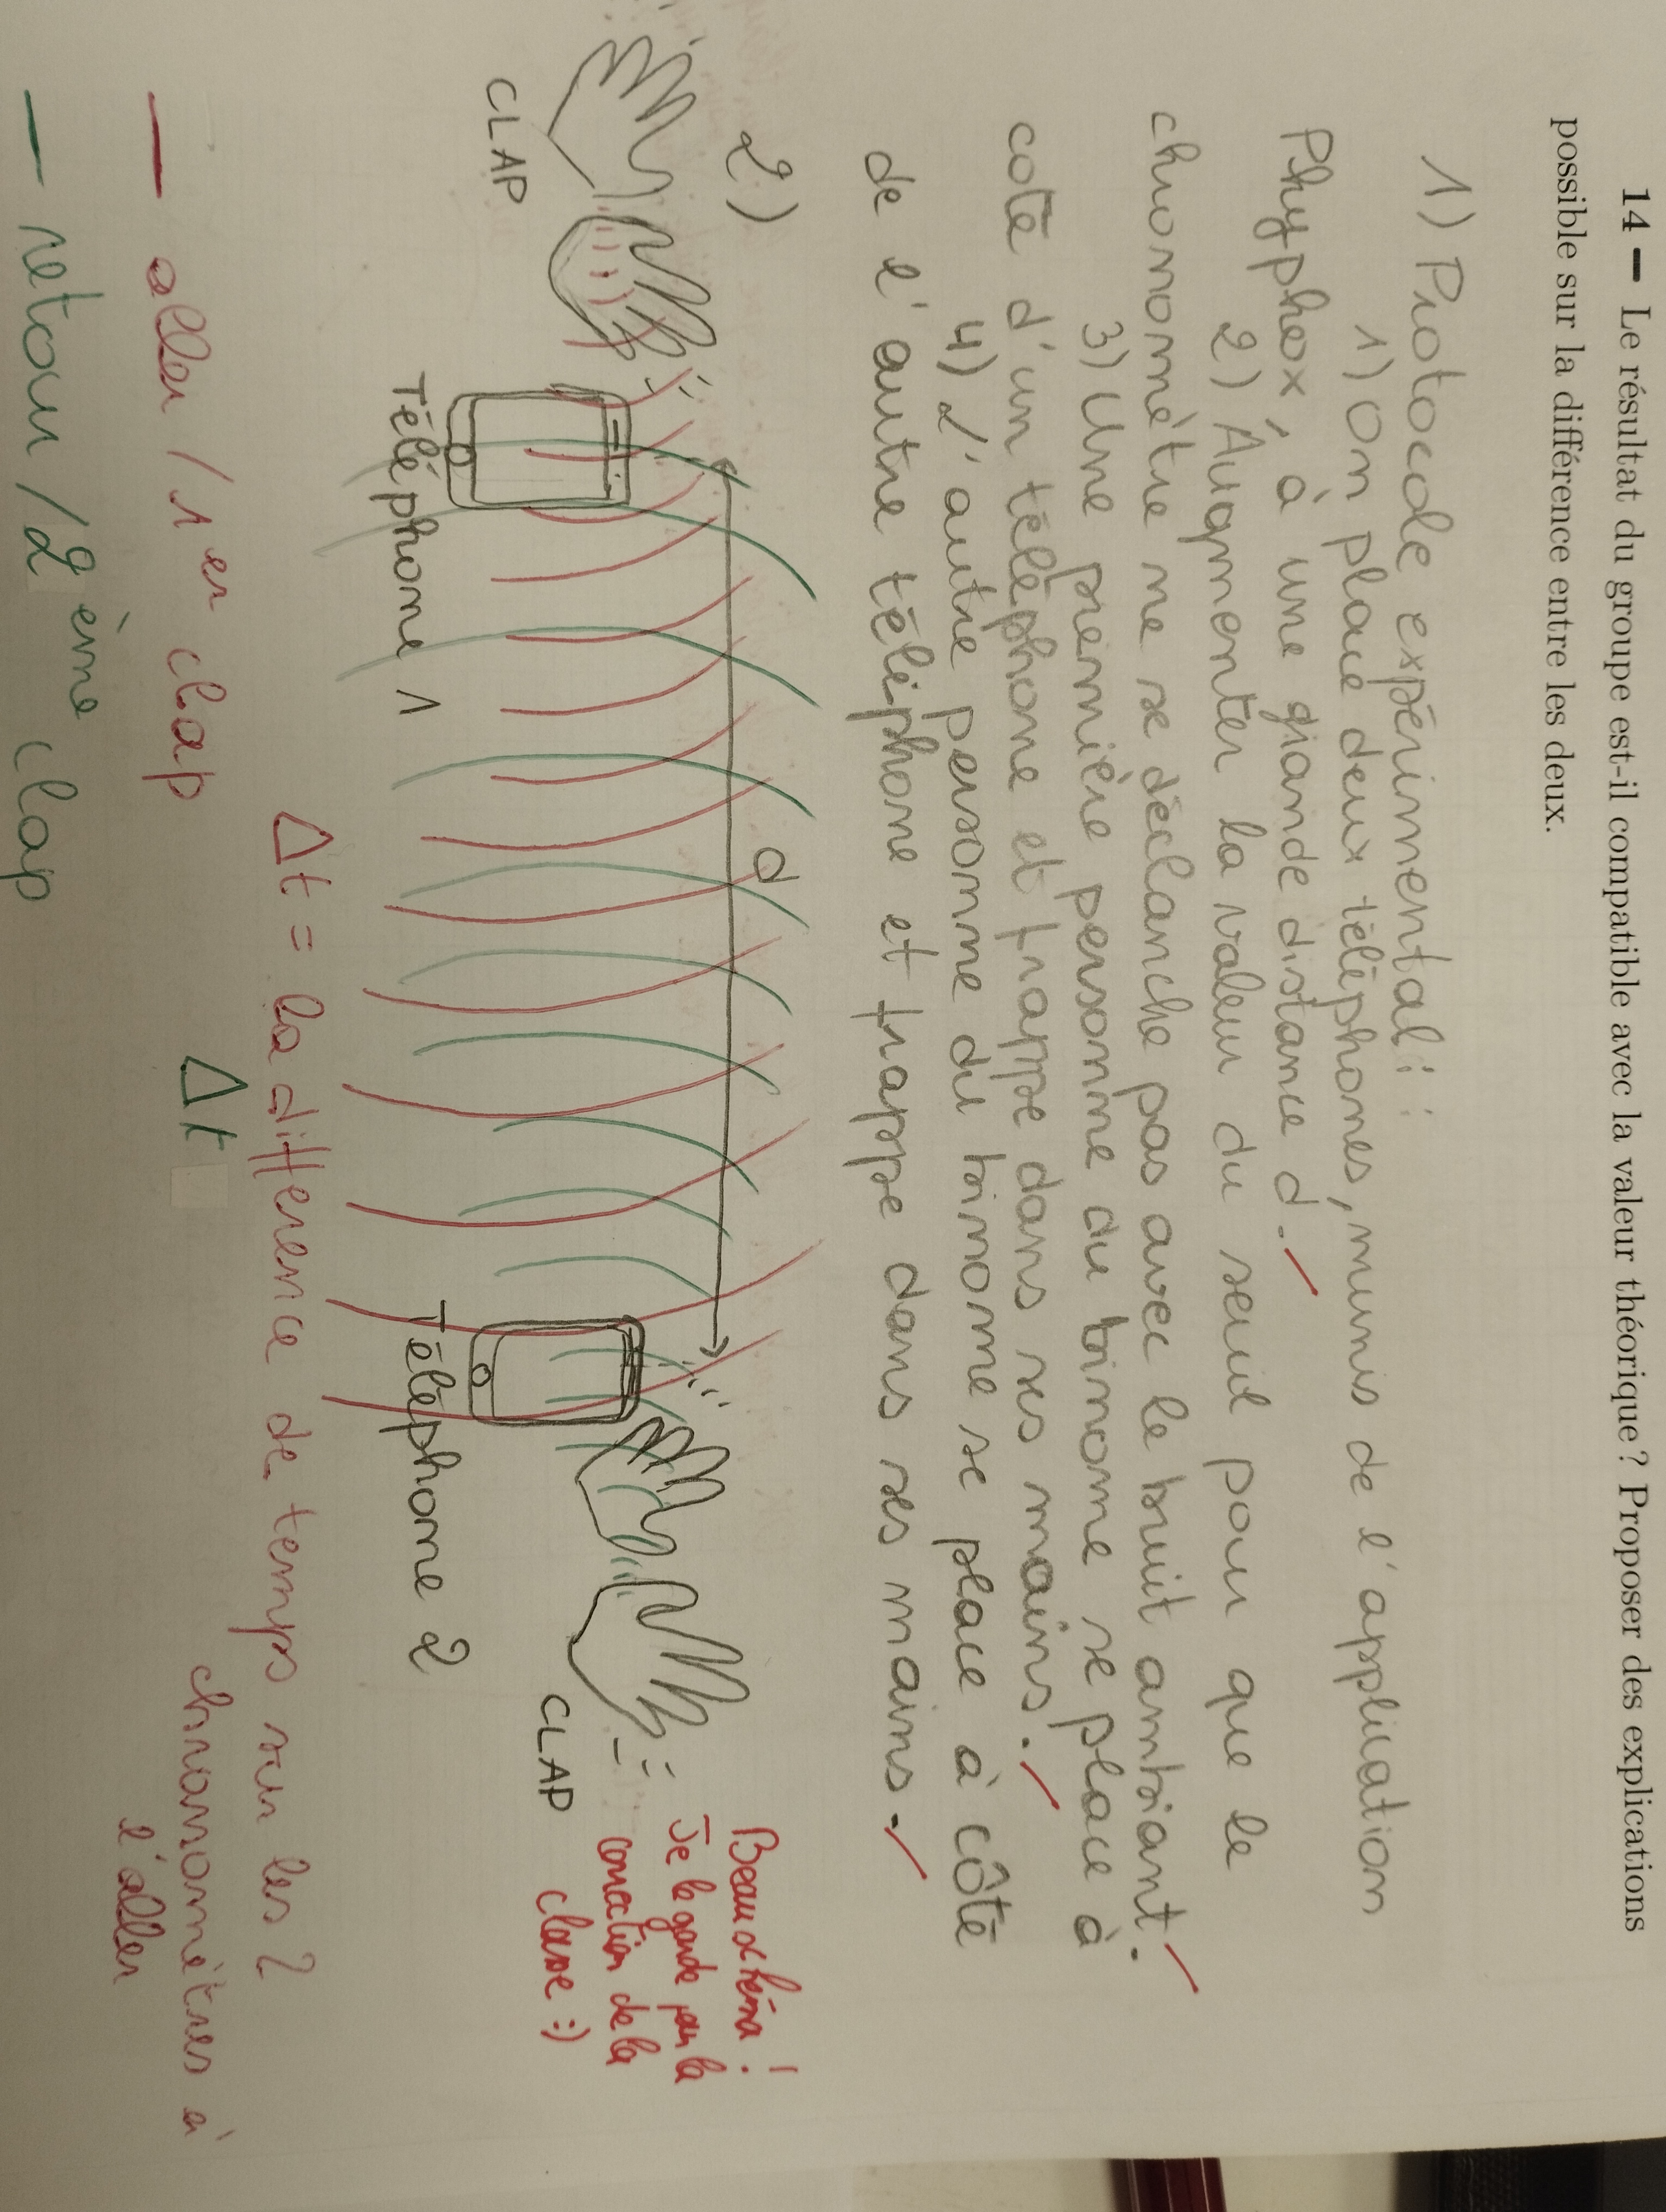 14 — Le résultat du groupe est-il compatible avec la valeur théorique ? Proposer des explications
possible sur la différence entre les deux.
1) Protocole expérimental :
1) On place deux téléphones, munis de l'application
Phyphox, à une grande distance d.
2) Augmenter la valeur du seuil pour que le
chronomètre ne se déclanche pas avec le bruit ambiant.
3) Une première personne du binome se place à
coté d'un téléphone et frappe dans ses mains.
4) L'autre personne du binome se place à côté
de l'autre téléphone et frappe dans ses mains.
2)
d
CLAP
Téléphone 1
Téléphone 2
CLAP
Beau schéma !
Je le garde pour la
correction de la
classe :)
Δt = la différence de temps sur les 2
chronomètres à
l'aller
Δt
— aller / 1er clap
— retour / 2ème clap